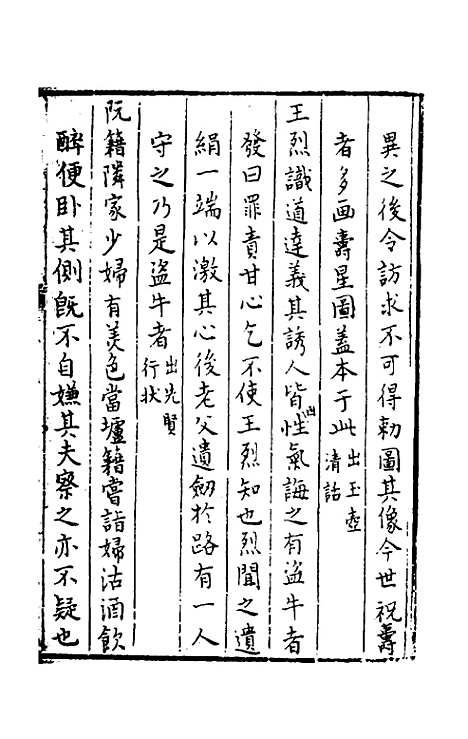 異之後令訪求不可得勅圖其像今世祝壽
者多画壽星圖蓋本于此出玉壺清話
王烈識道達義其誘人皆性氣誨之有盜牛者
發曰罪責甘心乞不使王烈知也烈聞之遺
絹一端以激其心後老父遺劒於路有一人
守之乃是盜牛者出先賢行状
阮籍隣家少婦有美色當壚籍嘗詣婦沽酒飲
醉便卧其側旣不自嫌其夫察之亦不疑也